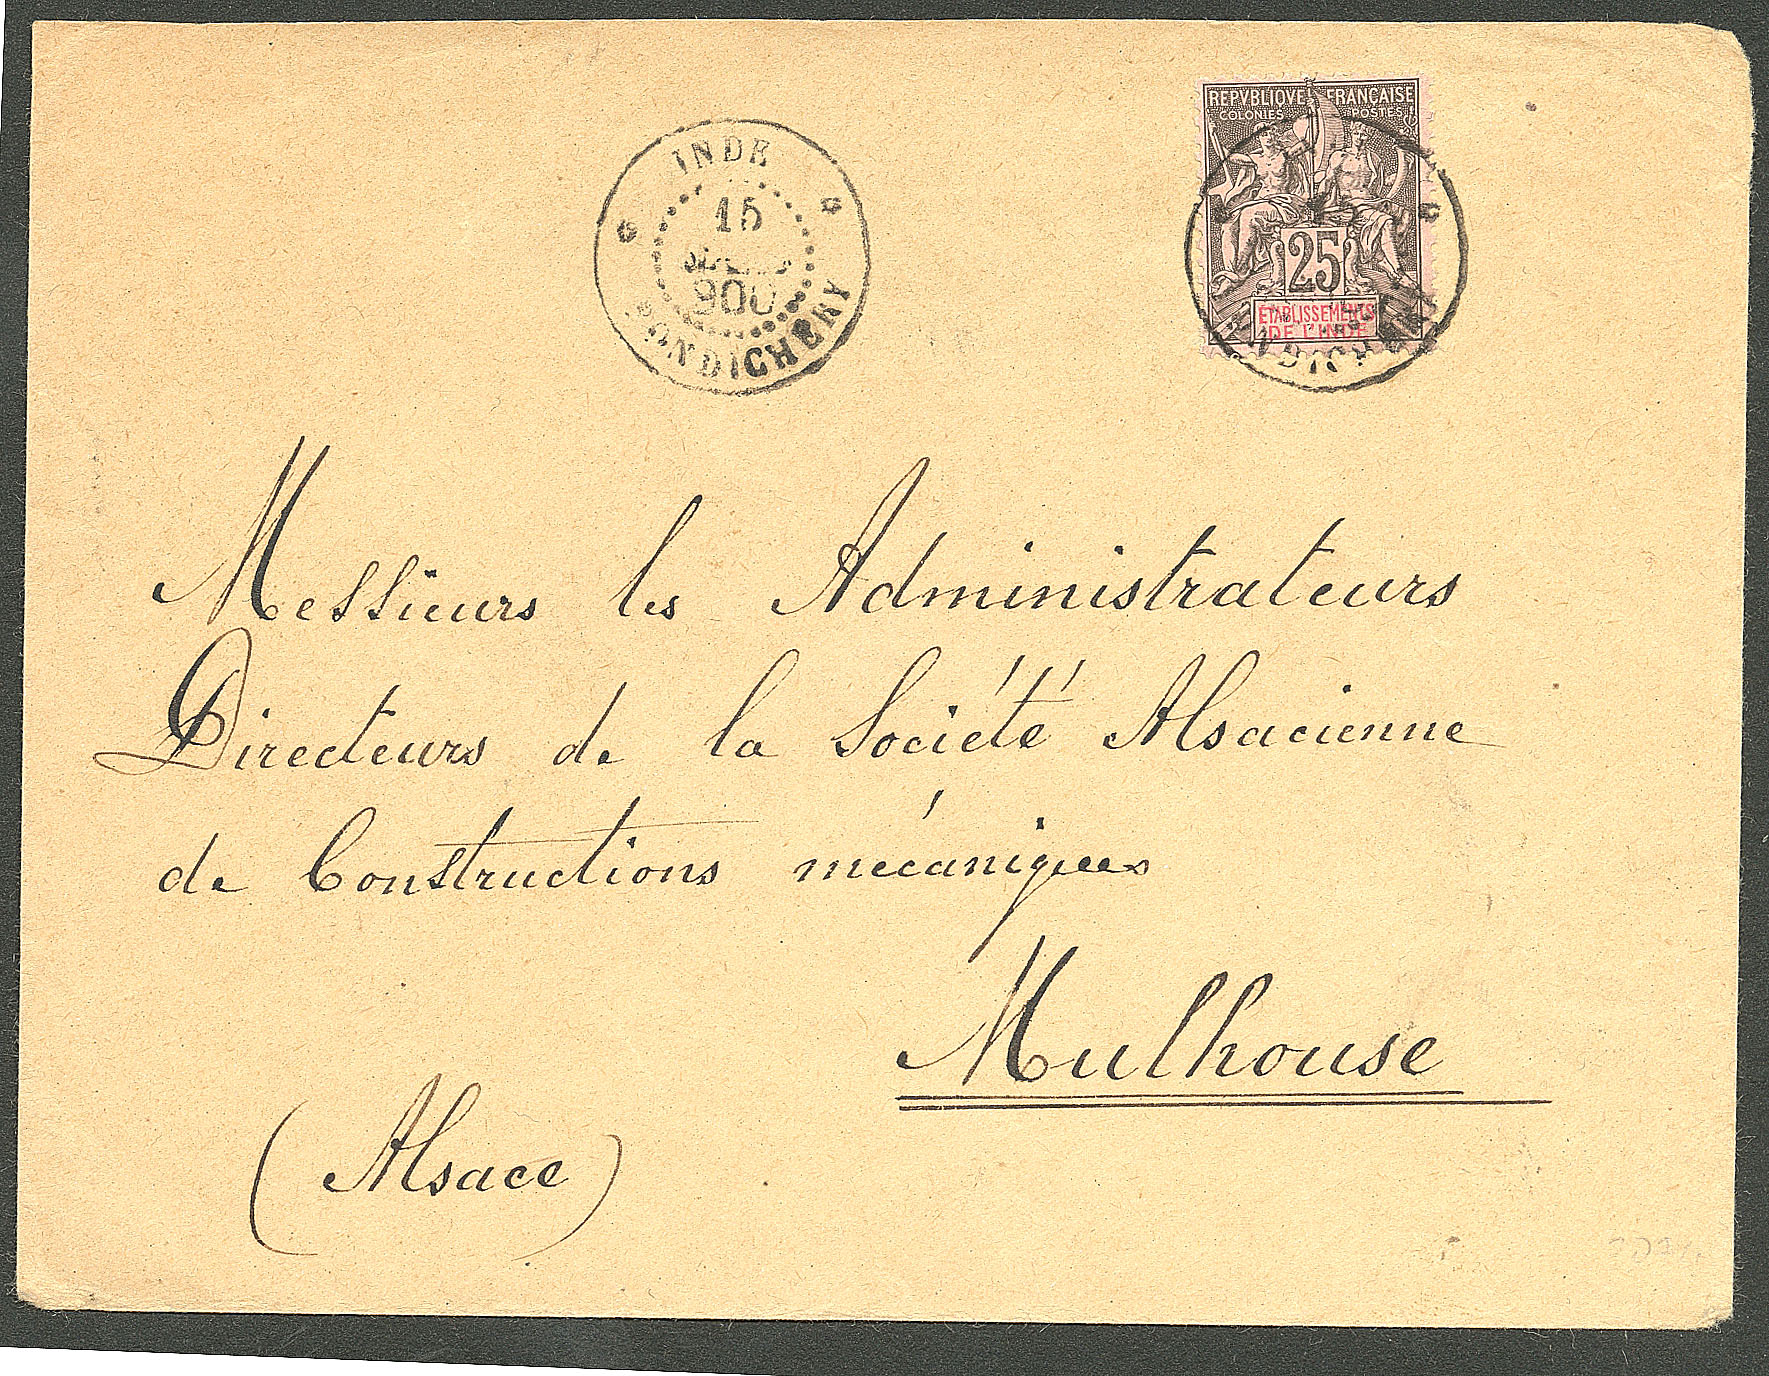 INDE
15
900
PONDICHERY
REPVBLIQVE FRANÇAISE
COLONIES POSTES
25
ETABLISSEMENTS
DE L'INDE
Messieurs les Administrateurs
Directeurs de la Société Alsacienne
de Constructions mécaniques
Mulhouse
(Alsace)